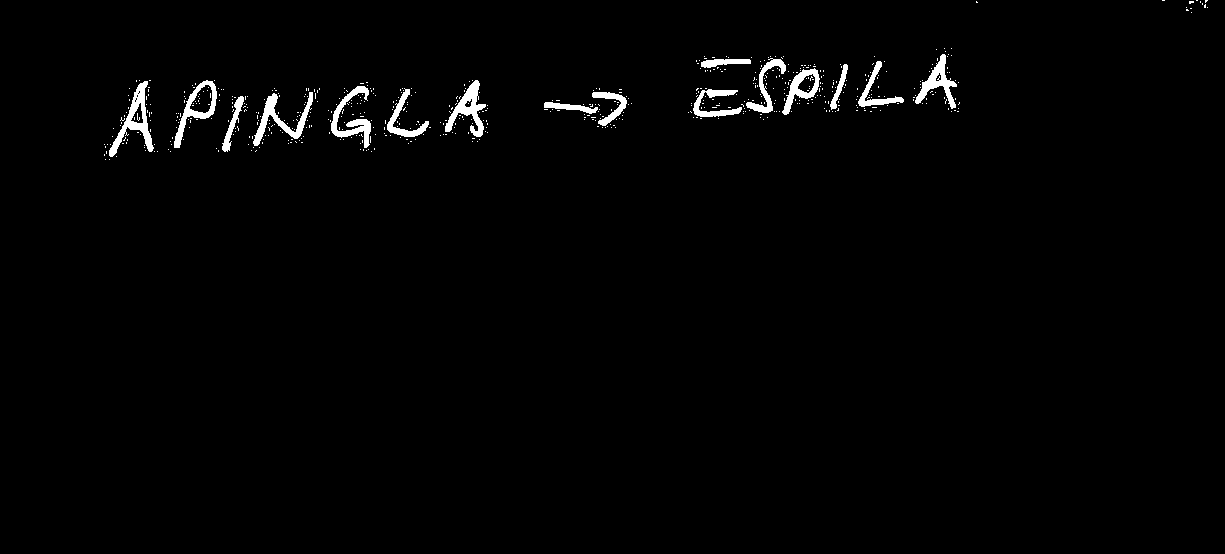 APINGLA → ESPILA